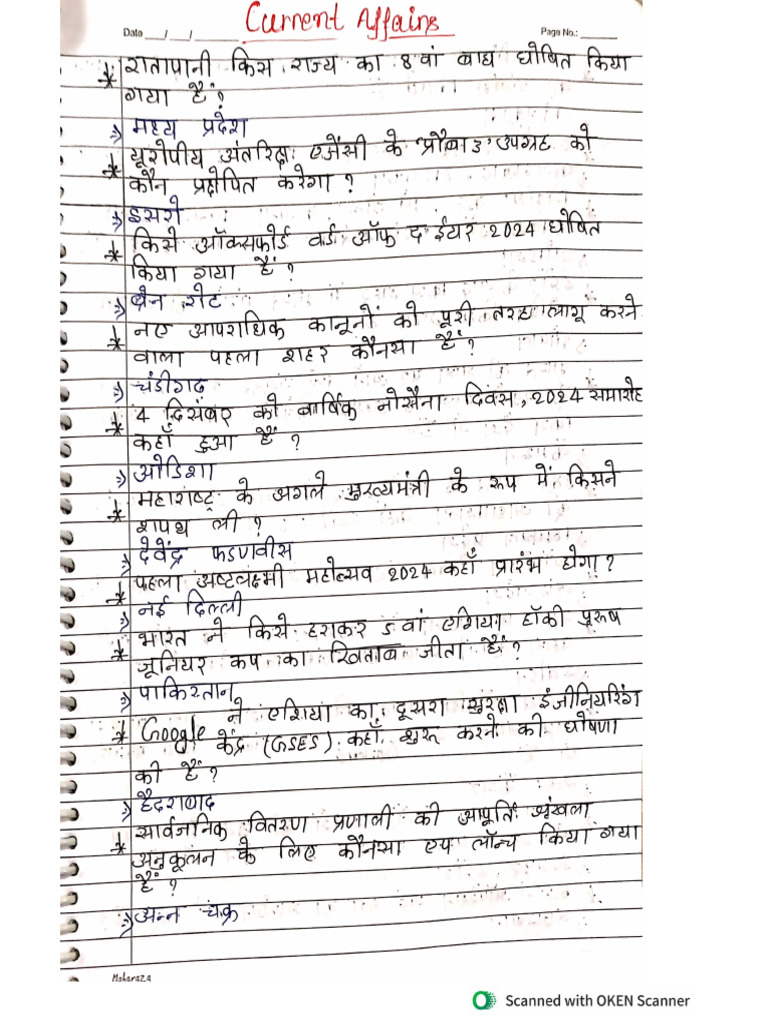 Current Affairs
Date __/__/____ Page No.: ______
* रातापानी किस राज्य का 8 वां बाघ घोषित किया
गया है?
⇒ मध्य प्रदेश
* यूरोपीय अंतरिक्ष एजेंसी के 'प्रोबा 3' उपग्रह को
कौन प्रक्षेपित करेगा ?
⇒ इसरो
* किसे ऑक्सफोर्ड वर्ड ऑफ द ईयर 2024 घोषित
किया गया हैं ?
⇒ ब्रेन रोट
* नए आपराधिक कानूनों को पूरी तरह लागू करने
वाला पहला शहर कौनसा हैं ?
⇒ चंडीगढ़
* 4 दिसंबर को वार्षिक नौसेना दिवस, 2024 समारोह
कहाँ हुआ हैं ?
⇒ ओडिशा
* महाराष्ट्र के अगले मुख्यमंत्री के रूप में किसने
शपथ ली ?
⇒ देवेंद्र फडणवीस
* पहला अष्टलक्ष्मी महोत्सव 2024 कहाँ प्रारंभ होगा ?
⇒ नई दिल्ली
* भारत ने किसे हराकर 5 वां एशिया हॉकी पुरूष
जूनियर कप का खिताब जीता हैं ?
⇒ पाकिस्तान
* Google ने एशिया का दूसरा सुरक्षा इंजीनियरिंग
केंद्र (GSES) कहाँ शुरू करने की घोषणा
की हैं ?
⇒ हैदराबाद
* सार्वजनिक वितरण प्रणाली की आपूर्ति श्रृंखला
अनुकूलन के लिए कौनसा एप लॉन्च किया गया
हैं ?
⇒ अन्न चक्र
Scanned with OKEN Scanner